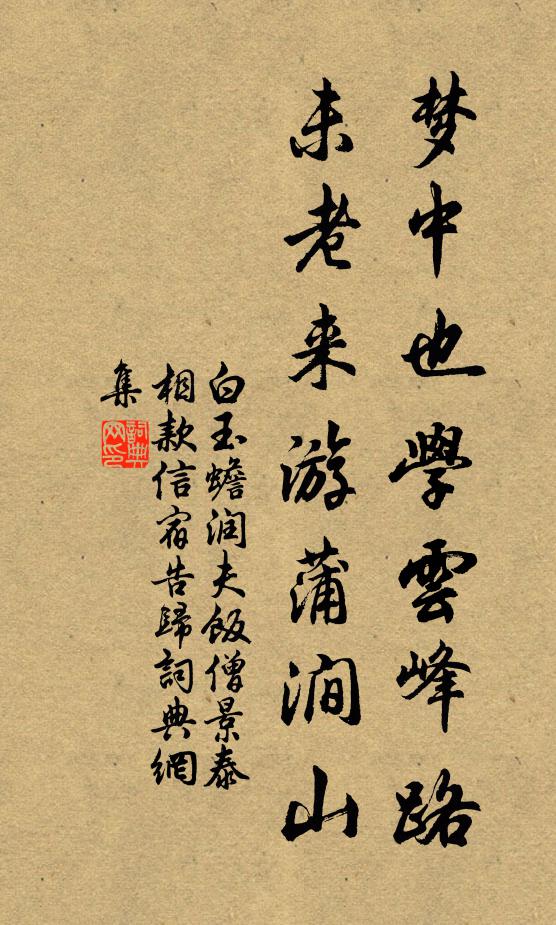 梦中也學雲峰路
未老来游蒲澗山
白玉蟾润夫飯僧景泰
相款信宿告歸詞典網
集
詞典
网印